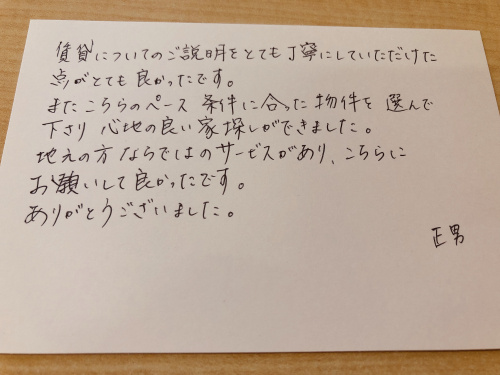 賃貸についてのご説明をとても丁寧にしていただけた
点がとても良かったです。
またこちらのペース 条件に合った物件を 選んで
下さり 心地の良い家探しができました。
地元の方ならではのサービスがあり、こちらに
お願いして良かったです。
ありがとうございました。
正男